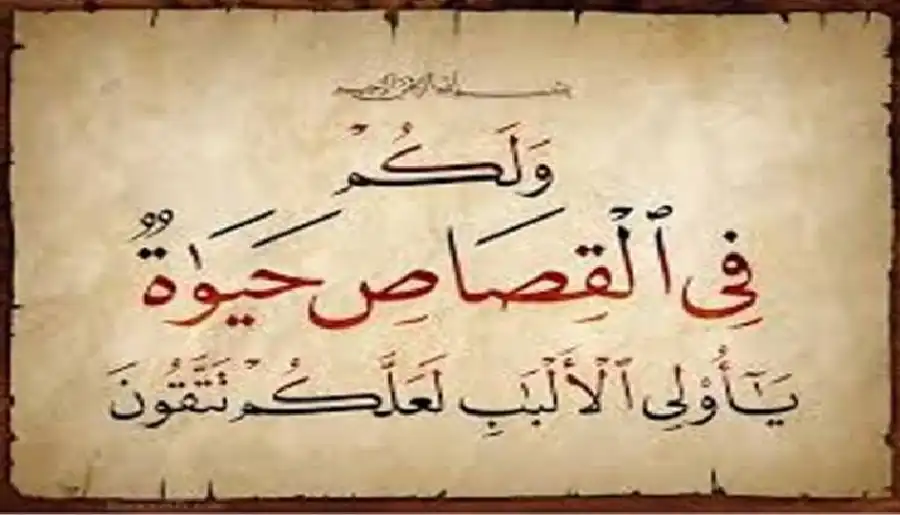 بسم الله الرحمن الرحيم
وَلَكُمۡ
فِي ٱلۡقِصَاصِ حَيَوٰةٌ
يَـٰٓأُوْلِي ٱلۡأَلۡبَـٰبِ لَعَلَّكُمۡ تَتَّقُونَ